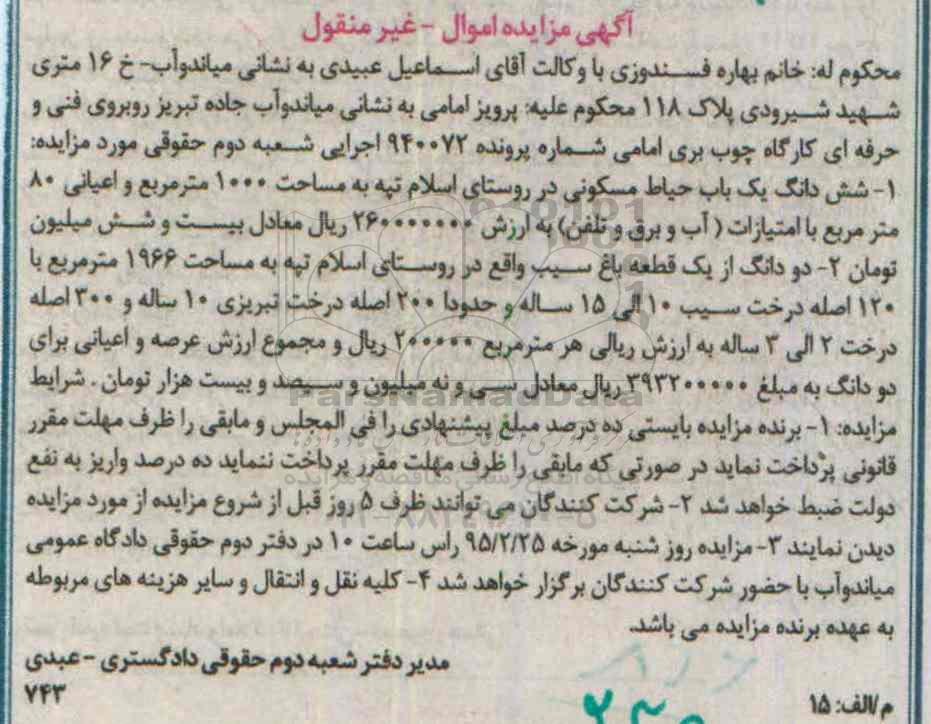 آگهی مزایده اموال - غیر منقول
محکوم له: خانم بهاره فسندوزی با وکالت آقای اسماعیل عبیدی به نشانی میاندوآب- خ ۱۶ متری
شهید شیرودی پلاک ۱۱۸ محکوم علیه: پرویز امامی به نشانی میاندوآب جاده تبریز روبروی فنی و
حرفه ای کارگاه چوب بری امامی شماره پرونده ۹۴۰۰۷۲ اجرایی شعبه دوم حقوقی مورد مزایده:
۱- شش دانگ یک باب حیاط مسکونی در روستای اسلام تپه به مساحت ۱۰۰۰ مترمربع و اعیانی ۸۰
متر مربع با امتیازات ( آب و برق و تلفن) به ارزش ۲۶۰۰۰۰۰۰۰ ریال معادل بیست و شش میلیون
تومان ۲- دو دانگ از یک قطعه باغ سیب واقع در روستای اسلام تپه به مساحت ۱۹۶۶ مترمربع با
۱۲۰ اصله درخت سیب ۱۰ الی ۱۵ ساله و حدودا ۲۰۰ اصله درخت تبریزی ۱۰ ساله و ۳۰۰ اصله
درخت ۲ الی ۳ ساله به ارزش ریالی هر مترمربع ۲۰۰۰۰۰ ریال و مجموع ارزش عرصه و اعیانی برای
دو دانگ به مبلغ ۳۹۳۲۰۰۰۰۰ ریال معادل سی و نه میلیون و سیصد و بیست هزار تومان . شرایط
مزایده: ۱- برنده مزایده بایستی ده درصد مبلغ پیشنهادی را فی المجلس و مابقی را ظرف مهلت مقرر
قانونی پرداخت نماید در صورتی که مابقی را ظرف مهلت مقرر پرداخت ننماید ده درصد واریز به نفع
دولت ضبط خواهد شد ۲- شرکت کنندگان می توانند ظرف ۵ روز قبل از شروع مزایده از مورد مزایده
دیدن نمایند ۳- مزایده روز شنبه مورخه ۹۵/۲/۲۵ راس ساعت ۱۰ در دفتر دوم حقوقی دادگاه عمومی
میاندوآب با حضور شرکت کنندگان برگزار خواهد شد ۴- کلیه نقل و انتقال و سایر هزینه های مربوطه
به عهده برنده مزایده می باشد.
مدیر دفتر شعبه دوم حقوقی دادگستری - عبدی
م/الف: ۱۵
۷۴۳
ParsNamadData